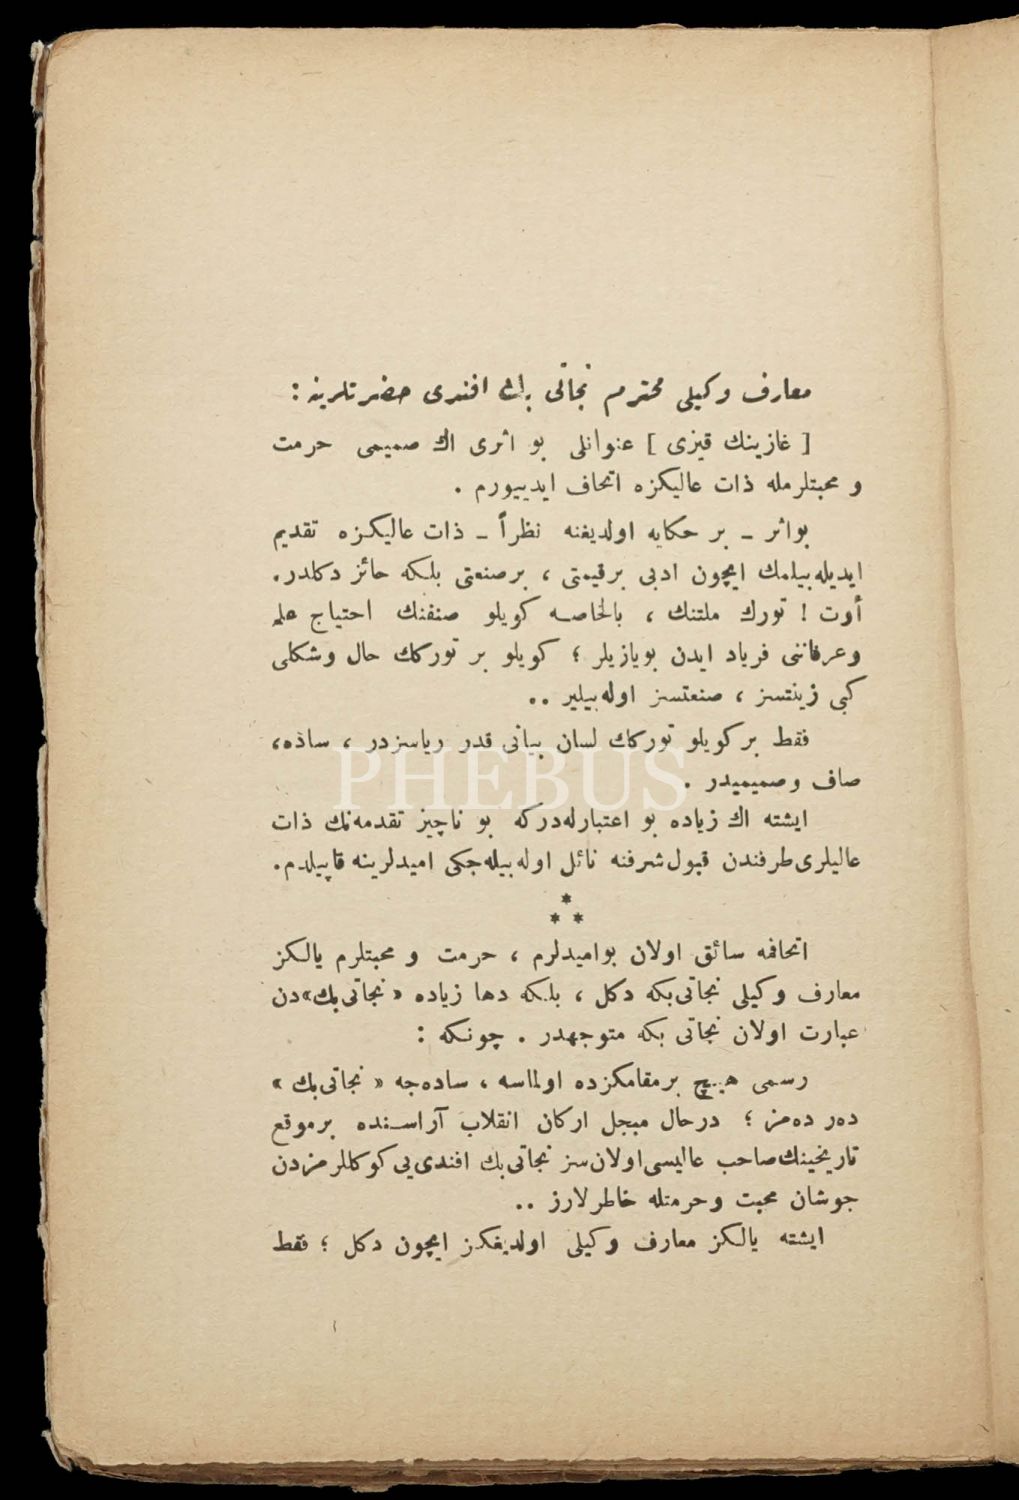 معارف وكيلى محترم نجاتى بك افندى حضرتلرينه :
[ غازينك قيزى ] عنوانلى بو اثرى اك صميمى حرمت
و محبتلرمله ذات عاليكزه اتحاف ايدييورم .
بواثر ــ بر حكايه اولديغنه نظراً ــ ذات عاليكزه تقديم
ايديله بيلمك ايچون ادبى برقيمتى ، برصنعتى بلكه حائز دكلدر.
أوت ! تورك ملتنك ، بالخاصه كويلو صنفنك احتياج علم
وعرفاننى فرياد ايدن بويازيلر ؛ كويلو بر توركك حال وشكلى
كبى زينتسز ، صنعتسز اوله بيلير ..
فقط بركويلو توركك لسان بيانى قدر رياسزدر ، ساده،
صاف وصميميدر .
PHEBUS
ايشته اك زياده بو اعتبارله دركه بو ناچيز تقدمه نك ذات
عاليلرى طرفندن قبول شرفنه نائل اوله بيله جكى اميدلرينه قاپيلدم.
* * *
اتحافمه سائق اولان بواميدلرم ، حرمت و محبتلرم يالكز
معارف وكيلى نجاتى بكه دكل ، بلكه دها زياده « نجاتى بك» دن
عبارت اولان نجاتى بكه متوجهدر . چونكه :
رسمى هيچ برمقامكزده اولماسه ، ساده جه « نجاتى بك »
ده ر ده مز ؛ درحال مبجل اركان انقلاب آراسنده برموقع
تاريخينك صاحب عاليسى اولان سز نجاتى بك افندى يى كوكللرمزدن
جوشان محبت وحرمتله خاطرلارز ..
ايشته يالكز معارف وكيلى اولديغكز ايچون دكل ؛ فقط